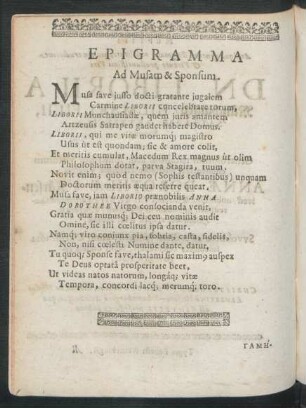 EPIGRAMMA
Ad Musam & Sponsum.
Musa fave jusso docti gratante jugalem
Carmine LIBORII concelebrare torum,
LIBORII Munchausiadæ, quem juris amantem
Artzensis Satrapen gaudet habere Domus.
LIBORII, qui me vitæ morumq; magistro
Usus ut est quondam, sic & amore colit,
Et meritis cumulat, Macedum Rex magnus ut olim
Philosophum dotat, parva Stagira, tuum.
Novit enim, quod nemo (Sophis testantibus) unquam
Doctorum meritis æqua referre queat.
Musa fave, jam LIBORIO prænobilis ANNA
DOROTHEE Virgo consocianda venit.
Gratia quæ munusq; Dei cen nominis audit
Omine, sic illi cœlitus ipsa datur.
Namq; viro conjunx pia, sobria, casta, fidelis,
Non, nisi cœlesti Numine dante, datur.
Tu quoq; Sponse fave, thalami sic maximus auspex
Te Deus optatâ prosperitate beet,
Ut videas natos natorum, longæq; vitæ
Tempora, concordi lacq; merumq; toro.
ΓΑΜΗ-